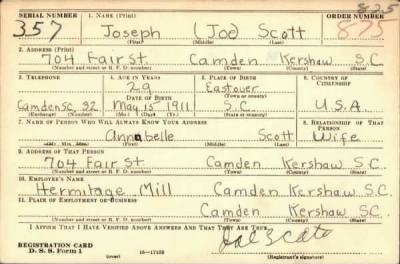 SERIAL NUMBER 1. NAME (Print) ORDER NUMBER
825
357 Joseph (Joe) Scott 875
(First) (Middle) (Last)
2. ADDRESS (Print)
704 Fair St. Camden Kershaw S.C.
(Number and street or R. F. D. number) (Town) (County) (State)
3. TELEPHONE 4. AGE IN YEARS 5. PLACE OF BIRTH 6. COUNTRY OF CITIZENSHIP
29 Eastover
DATE OF BIRTH (Town or county)
Camden SC, 92 May 15 1911 S.C. U.S.A.
(Exchange) (Number) (Mo.) (Day) (Yr.) (State or country)
7. NAME OF PERSON WHO WILL ALWAYS KNOW YOUR ADDRESS 8. RELATIONSHIP OF THAT PERSON
Annabelle Scott Wife
(First) (Middle) (Last)
9. ADDRESS OF THAT PERSON
704 Fair St. Camden Kershaw S.C.
(Number and street or R. F. D. number) (Town) (County) (State)
10. EMPLOYER'S NAME
Hermitage Mill Camden Kershaw S.C.
11. PLACE OF EMPLOYMENT OR BUSINESS
Camden Kershaw S.C.
(Number and street or R. F. D. number) (Town) (County) (State)
I AFFIRM THAT I HAVE VERIFIED ABOVE ANSWERS AND THAT THEY ARE TRUE.
REGISTRATION CARD
D. S. S. Form 1 (over) (Registrant's signature)